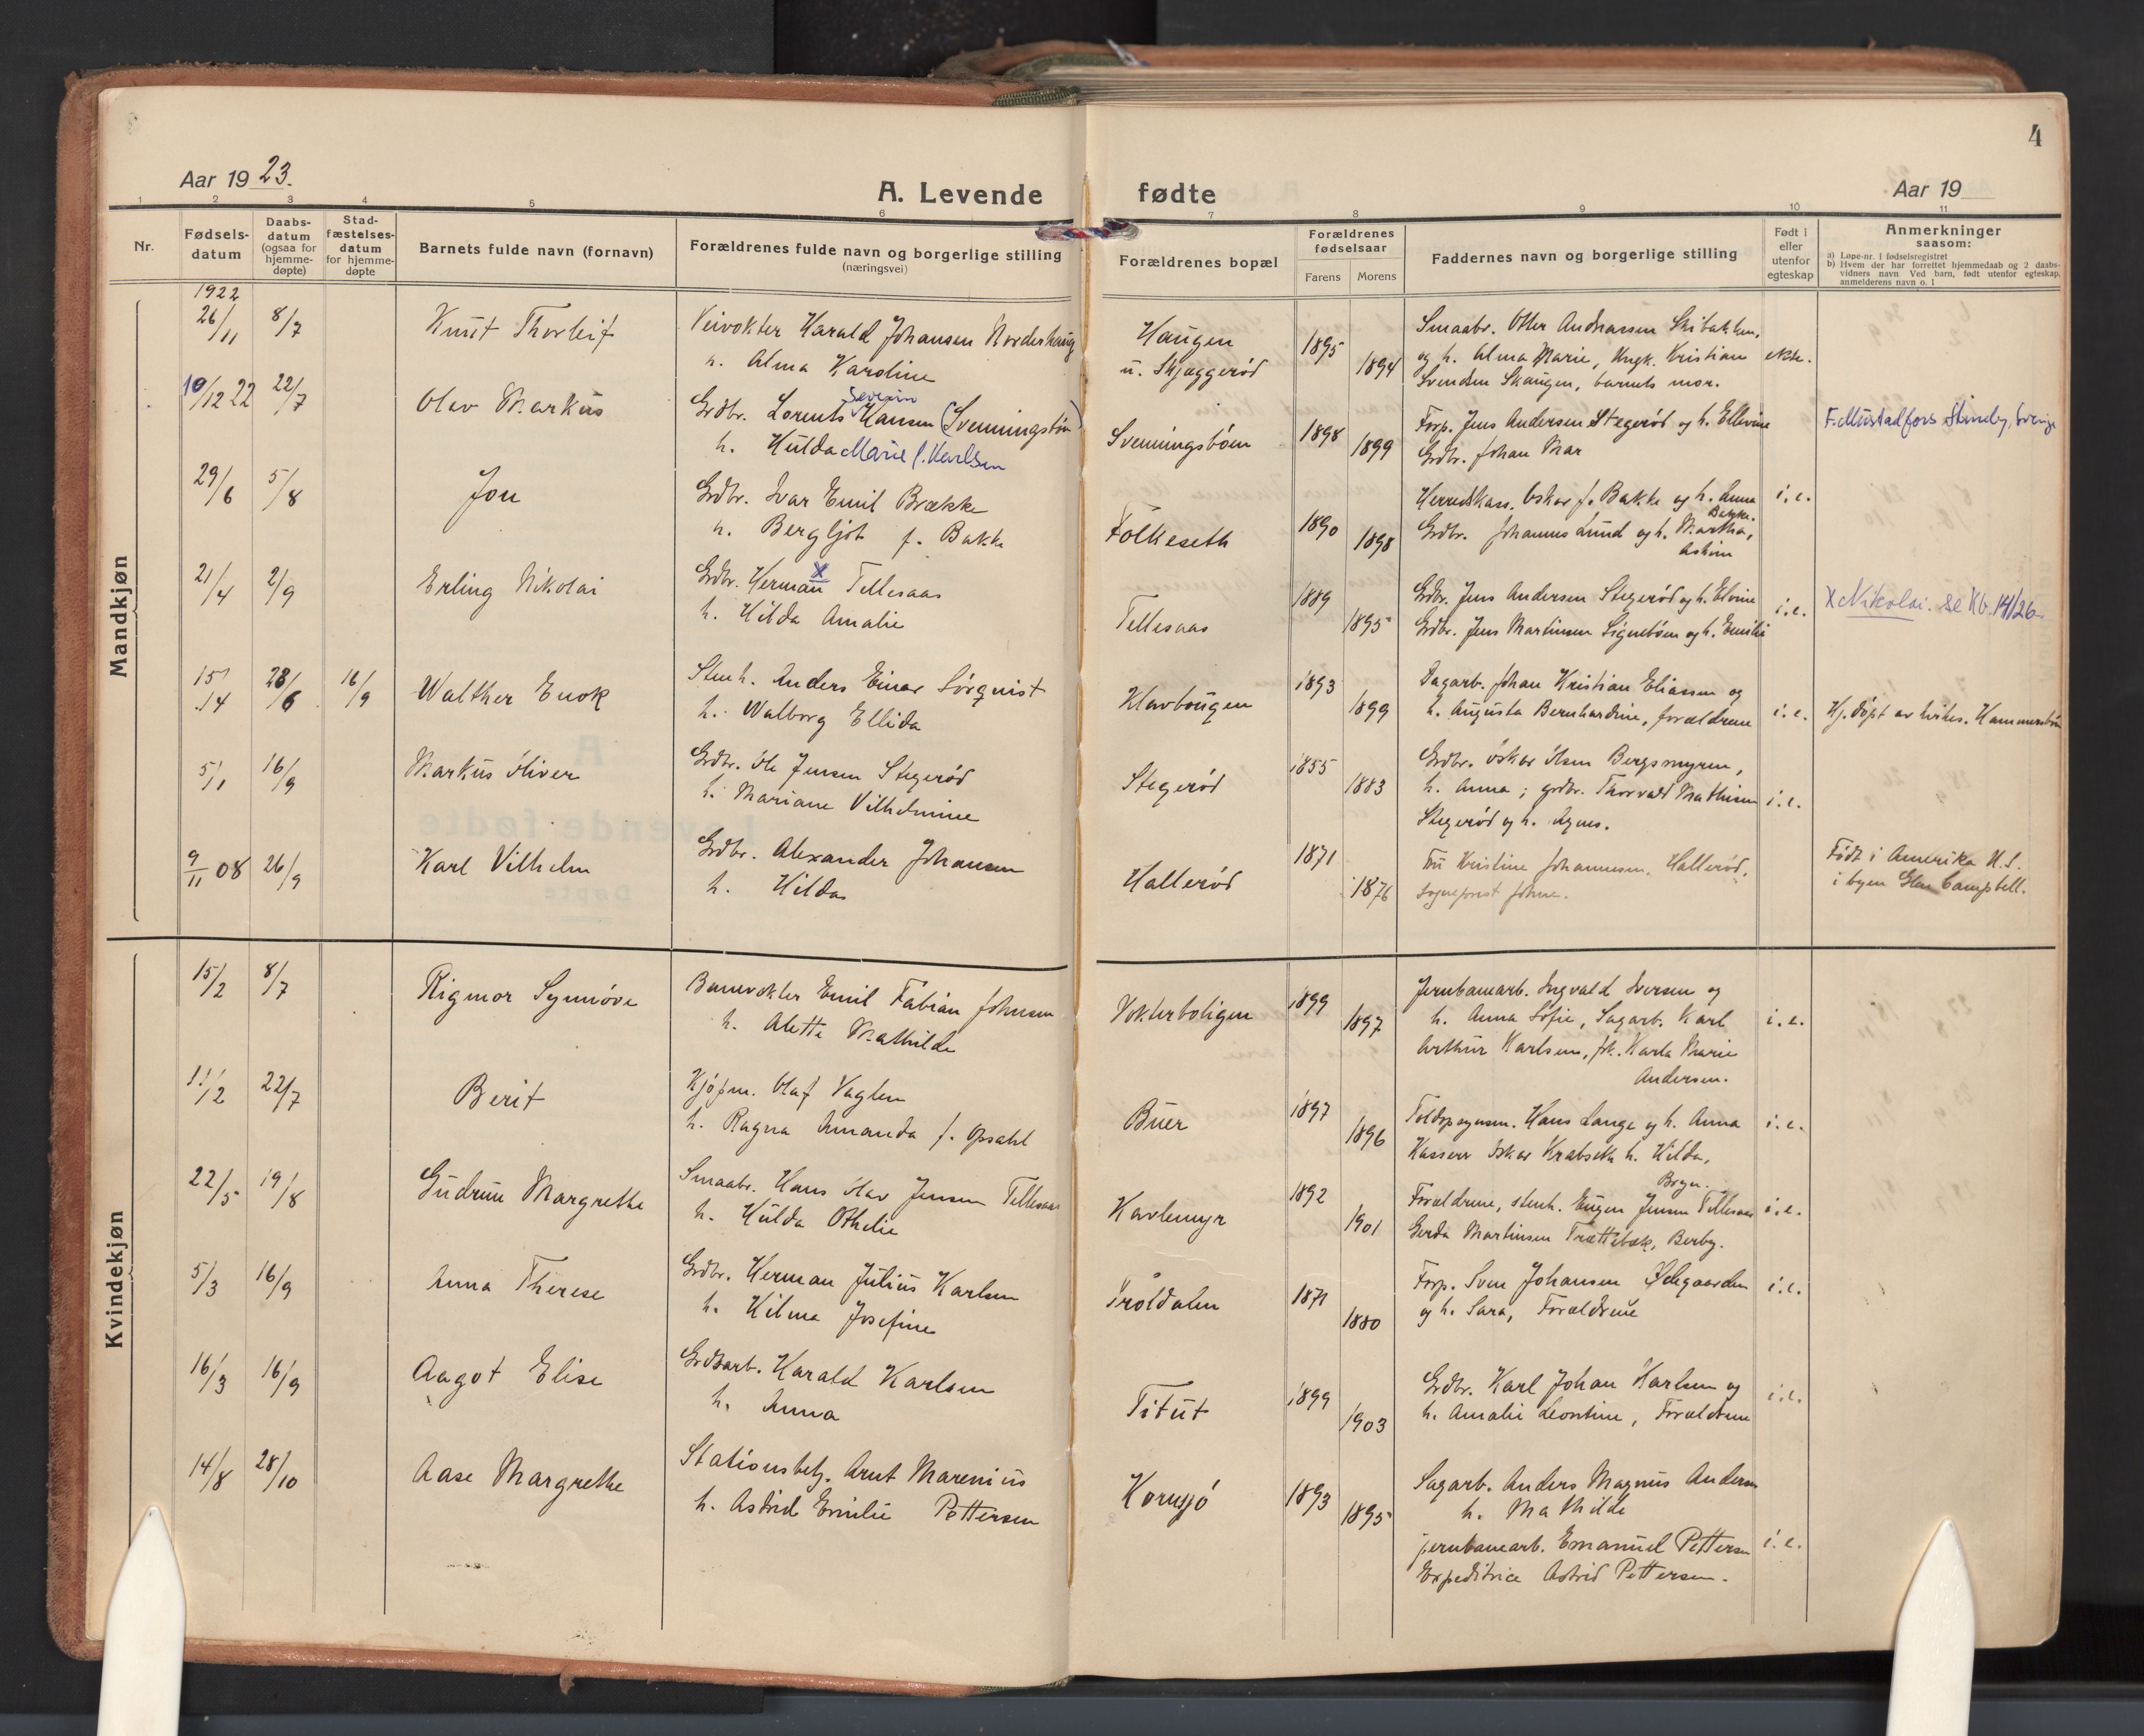 4
Aar 1923.
A. Levende fødte
Aar 19
1 2 3 4 5 6 7 8 9 10 11
Nr.
Fødsels-
datum
Daabs-
datum
(ogsaa for
hjemme-
døpte)
Stad-
fæstelses-
datum
for hjemme-
døpte
Barnets fulde navn (fornavn)
Forældrenes fulde navn og borgerlige stilling
(næringsvei)
Forældrenes bopæl
Forældrenes
fødselsaar
Farens Morens
Faddernes navn og borgerlige stilling
Født i
eller
utenfor
egteskap
Anmerkninger
saasom:
a) Løpe-nr. i fødselsregistret
b) Hvem der har forrettet hjemmedaab og 2 daabs-
vidners navn. Ved barn, født utenfor egteskap,
anmelderens navn o. l
Mandkjøn
1922
26/11 8/7 Knut Thorleif
Veivokter Harald Johansen Nordenhaug
h. Alma Karoline
Haugen
u. Skjæggerød
1895 1894
Smaabr. Otter Andreassen Skibakken,
og h. Alma Marie, Ungk. Kristian
Svendsen Skaugen, barnets mor.
ekte.
10/12 22 22/7 Olav Markus
Severin
Grdbr. Lorents Hansen (Svenningsbøn)
h. Hulda Marie f. Karlsen
Svenningsbøen
1898 1899
Forp. Jens Andersen Stegerød og h. Ellevine
Grdbr. Johan Mar
F. Mustadfors
29/6 5/8 Jon
Grdbr. Ivar Emil Brække
h. Bergljot f. Bakke
Folkeseth
1890 1898
Herredskass. Oskar f. Bakke og h. Anna
Bakke.
Grdbr. Johannes Lund og h. Martha,
Askim
i.e.
21/4 2/9 Erling Nikolai
Grdbr. Herman X Tellesaas
h. Hilda Amalie
Tellesaas
1889 1895
Grdbr. Jens Andersen Stegerød og h. Elvine
Grdbr. Jens Martinsen Signebøen og h. Emilie
i.e.
X Nikolai. se Kb. 14/26
15/4 28/6 16/9 Walther Enok
Stenh. Anders Einar Sörqvist
h. Walborg Ellida
Klavhaugen
1893 1899
Dagarb. Johan Kristian Eliassen og
h. Augusta Bernhardine, forældrene
i.e.
Hj.døpt av
5/1 16/9 Markus Oliver
Grdbr. Ole Jensen Stegerød
h. Mariane Vilhelmine
Stegerød
1855 1883
Grdbr. Oskar Olsen Bergsmyren,
h. Anna; grdbr. Thorvald Mathisen
Stegerød og h. Agnes.
i.e.
9/11 08 26/9 Karl Vilhelm
Grdbr. Alexander Johansen
h. Hilda
Hallerød
1871 1876
Fru Kristine Johannesen. Hallerød,
sogneprest Johne.
Født i Amerika U.S.
i byen Glen Campbell.
Kvindekjøn
15/2 8/7 Rigmor Synnøve
Banevokter Emil Fabian Johnsen
h. Alette Mathilde
Vokterboligen
1899 1897
Jernbanearb. Ingvald Iversen og
h. Anna Sofie, Sagarb. Karl
Arthur Karlsen, fk. Karla Marie
Andersen.
i.e.
11/2 22/7 Berit
Kjøpm. Olaf Vaglen
h. Ragna Amanda f. Opsahl
Buer
1897 1896
Toldopsynsm. Hans Lange og h. Anna
Kasserer Oskar Krabseth h. Hilda,
Bryn.
i.e.
22/5 19/8 Gudrun Margrethe
Smaabr. Hans Olav Jensen Tellesaas
h. Hulda Othelie
Kavlemyr
1892 1901
Forældrene, stenh. Eugen Jensen Tellesaas
Gerda Martinsen Trættebæk, Berby.
i.e.
5/3 16/9 Anna Therese
Grdbr. Herman Julius Karlsen
h. Hilma Josefine
Troldalen
1871 1880
Forp. Sven Johansen Ødegaarden
og h. Sara, Forældrene
i.e.
16/3 16/9 Aagot Elise
Grdsarb. Harald Karlsen
h. Anna
Titut
1899 1903
Grdbr. Karl Johan Karlsen og
h. Amalie Leontine, Forældrene
i.e.
14/8 28/10 Aase Margrethe
Stationsbetj. Arnt Marenius
h. Astrid Emilie Pettersen
Kornsjø
1893 1895
Sagarb. Anders Magnus Andersen
h. Mathilde
jernbanearb. Emanuel Pettersen
Expeditrice Astrid Pettersen.
i.e.